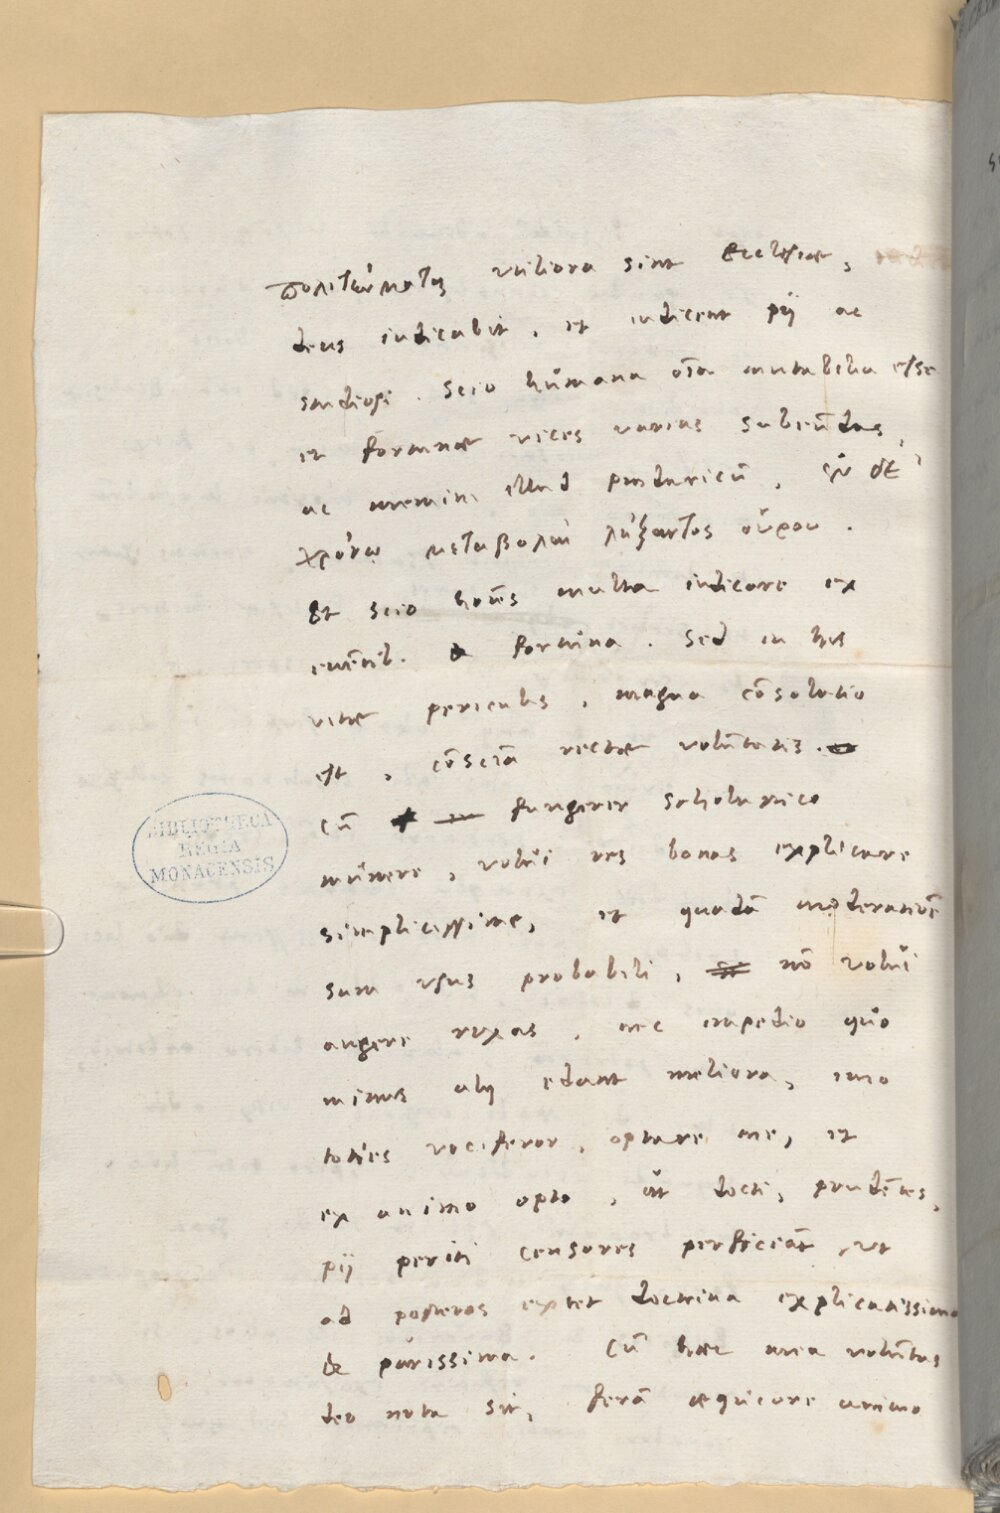 πολιτεύματος utiliora sint Ecclesiae,
deus iudicabit, et iudicent pij ac
studiosi. Scio humana oīa mutabilia esse
et fortunae vices varias subeūdas,
ac memini illud pindaricū, ἐν δὲ
χρόνῳ μεταβολαὶ λήξαντος οὔρου.
Et scio hoīēs multa iudicare ex
euētib. fortuita. Sed in his
vitae periculis, magna cōsolatio
est, cōsciā rectae volūtatis.
Cū fungerer scholastico
munere, volui res bonas explicare
simplicissime, et quadā moderatiōe
sum usus probabili, nō volui
augere rixas, nec impedio quo
minus alij edant meliora, imo
toties vociferor, optare me, et
ex animo opto, ut docti, prudētes,
pij periti censores perficiāt, ut
ad posteros extet doctrina explicatissima
& purissima. Cū haec mea volūtas
deo nota sit, ferā aequiore animo
BIBLIOTHECA
REGIA
MONACENSIS